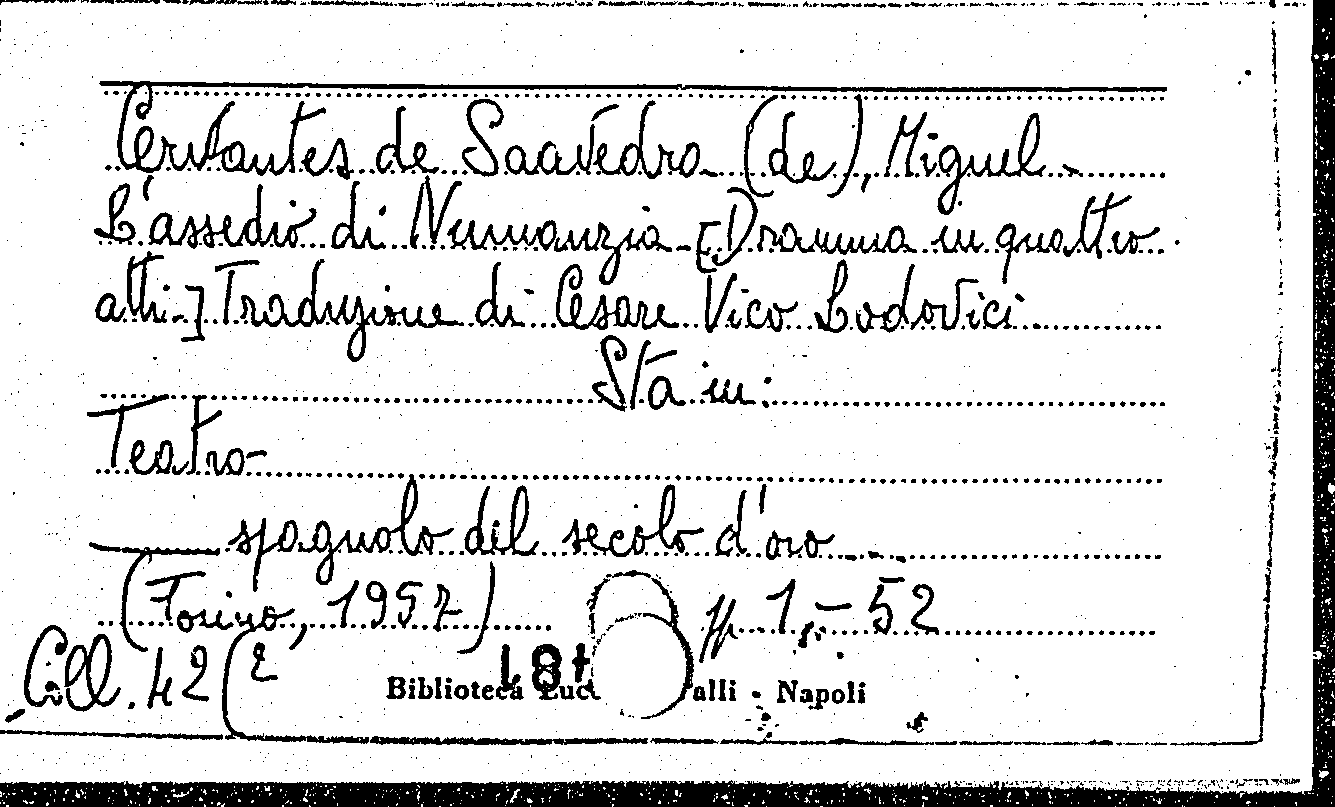 Cervantes de Saavedra (de), Miguel -
L'assedio di Numanzia - [Dramma in quattro
atti -] Traduzione di Cesare Vico Lodovici
Sta in:
Teatro -
spagnolo del secolo d'oro
(Torino, 1957) pp. 1 - 52
Coll. 42 (2
Biblioteca alli - Napoli